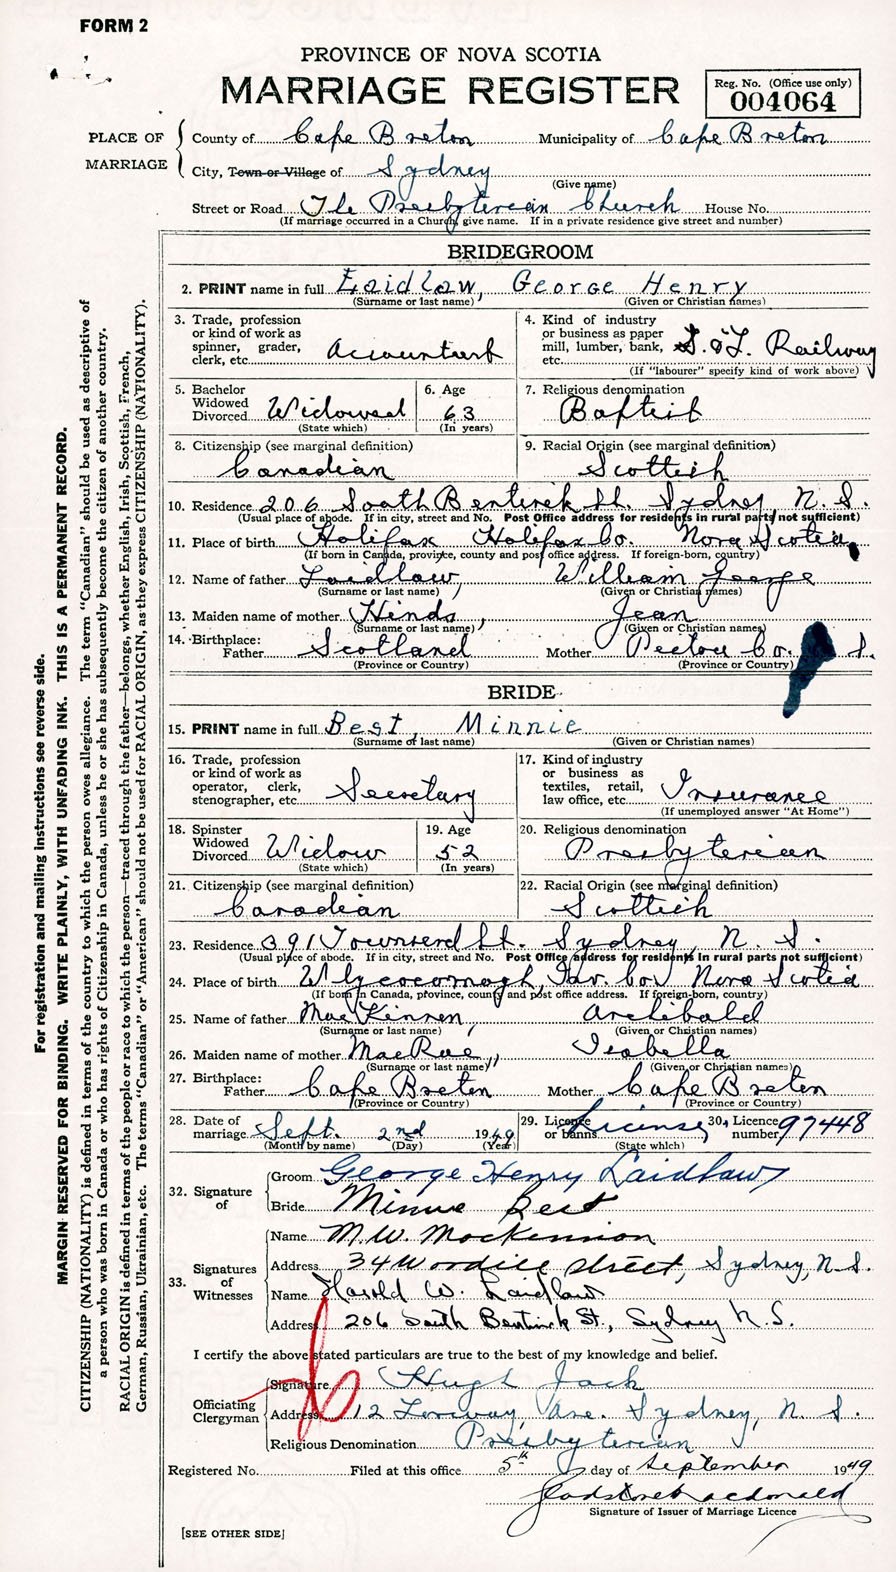 FORM 2
PROVINCE OF NOVA SCOTIA
MARRIAGE REGISTER
Reg. No. (Office use only)
004064
PLACE OF MARRIAGE
County of Cape Breton Municipality of Cape Breton
City, Town or Village of Sydney
(Give name)
Street or Road The Presbyterian Church House No.
(If marriage occurred in a Church, give name. If in a private residence give street and number)
BRIDEGROOM
2. PRINT name in full Laidlaw, George Henry
(Surname or last name) (Given or Christian names)
3. Trade, profession or kind of work as spinner, grader, clerk, etc. Accountant
4. Kind of industry or business as paper mill, lumber, bank, etc. S. & L. Railway
(If "labourer" specify kind of work above)
5. Bachelor Widowed Divorced Widowed
(State which)
6. Age 63
(In years)
7. Religious denomination Baptist
8. Citizenship (see marginal definition) Canadian
9. Racial Origin (see marginal definition) Scottish
10. Residence 206 South Bentinck St. Sydney, N. S.
(Usual place of abode. If in city, street and No. Post Office address for residents in rural parts not sufficient)
11. Place of birth Halifax Halifax Co. Nova Scotia
(If born in Canada, province, county and post office address. If foreign-born, country)
12. Name of father Laidlaw, William George
(Surname or last name) (Given or Christian names)
13. Maiden name of mother Hinds, Jean
(Surname or last name) (Given or Christian names)
14. Birthplace: Father Scotland Mother Pictou Co. S.
(Province or Country) (Province or Country)
BRIDE
15. PRINT name in full Best, Minnie
(Surname or last name) (Given or Christian names)
16. Trade, profession or kind of work as operator, clerk, stenographer, etc. Secretary
17. Kind of industry or business as textiles, retail, law office, etc. Insurance
(If unemployed answer "At Home")
18. Spinster Widowed Divorced Widow
(State which)
19. Age 52
(In years)
20. Religious denomination Presbyterian
21. Citizenship (see marginal definition) Canadian
22. Racial Origin (see marginal definition) Scottish
23. Residence 391 Townsend St. Sydney, N. S.
(Usual place of abode. If in city, street and No. Post Office address for residents in rural parts not sufficient)
24. Place of birth Whycocomagh, Inv. Co. Nova Scotia
(If born in Canada, province, county and post office address. If foreign-born, country)
25. Name of father MacKinnon, Archibald
(Surname or last name) (Given or Christian names)
26. Maiden name of mother MacRae, Isabella
(Surname or last name) (Given or Christian names)
27. Birthplace: Father Cape Breton Mother Cape Breton
(Province or Country) (Province or Country)
28. Date of marriage Sept. 2nd 1949
(Month by name) (Day) (Year)
29. Licence or banns License
(State which)
30. Licence number 97448
32. Signature of
Groom George Henry Laidlaw
Bride Minnie Best
33. Signatures of Witnesses
Name M.W. MacKinnon
Address 34 Woodill Street, Sydney, N.S.
Name Harold W. Laidlaw
Address 206 South Bentinck St., Sydney N.S.
I certify the above stated particulars are true to the best of my knowledge and belief.
Officiating Clergyman
Signature Hugh Jack
Address 12 Lorway, Ave. Sydney, N. S.
Religious Denomination Presbyterian
Registered No. Filed at this office 5th day of September 1949
Signature of Issuer of Marriage Licence
[SEE OTHER SIDE]
For registration and mailing instructions see reverse side.
MARGIN RESERVED FOR BINDING. WRITE PLAINLY, WITH UNFADING INK. THIS IS A PERMANENT RECORD.
CITIZENSHIP (NATIONALITY) is defined in terms of the country to which the person owes allegiance. The term "Canadian" should be used as descriptive of
a person who was born in Canada or who has rights of Citizenship in Canada, unless he or she has subsequently become the citizen of another country.
RACIAL ORIGIN is defined in terms of the people or race to which the person—traced through the father—belongs, whether English, Irish, Scottish, French,
German, Russian, Ukrainian, etc. The terms "Canadian" or "American" should not be used for RACIAL ORIGIN, as they express CITIZENSHIP (NATIONALITY).